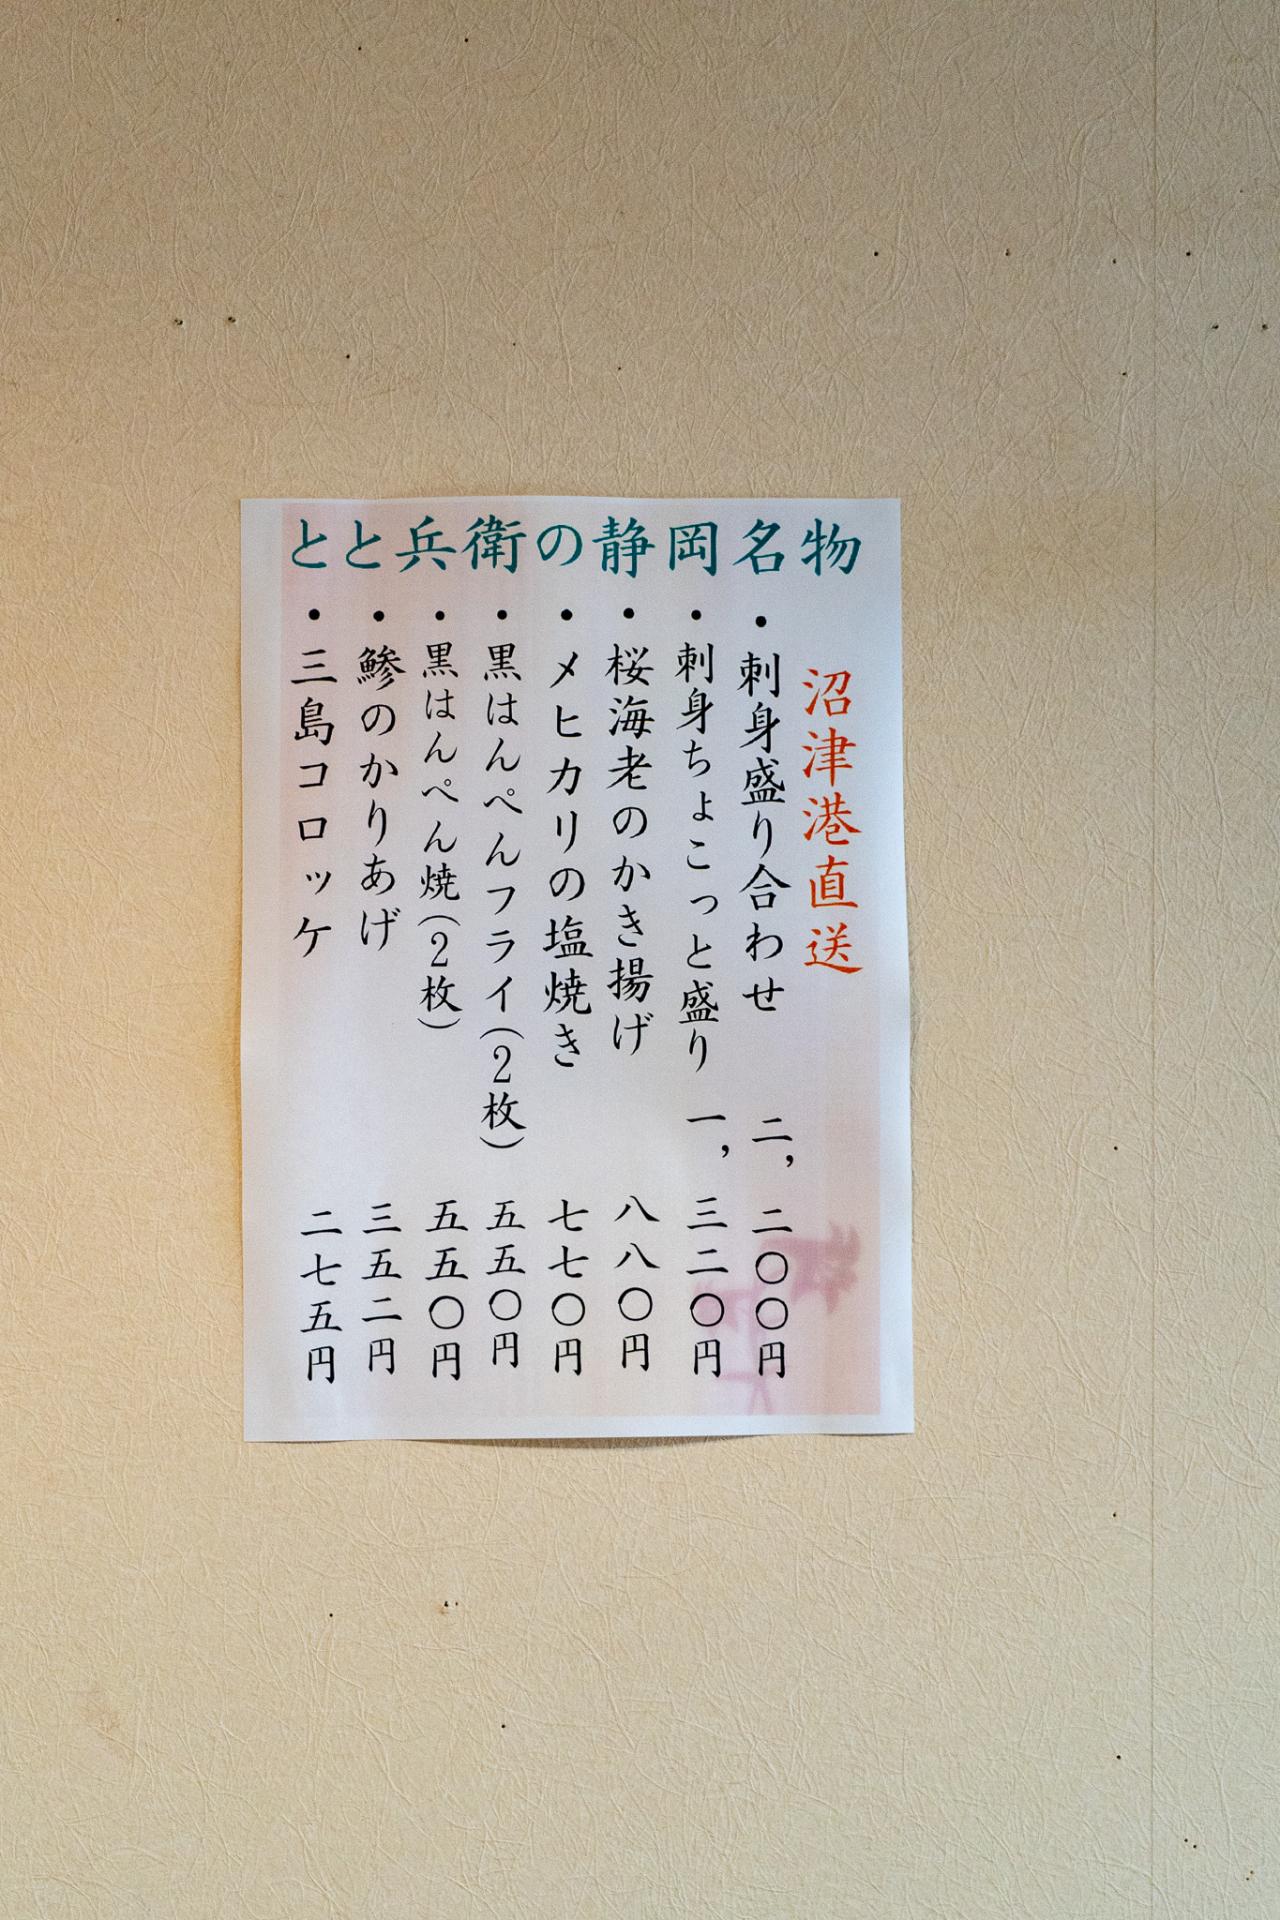 とと兵衛の静岡名物
沼津港直送
・刺身盛り合わせ 二，二〇〇円
・刺身ちょこっと盛り 一，三二〇円
・桜海老のかき揚げ 八八〇円
・メヒカリの塩焼き 七七〇円
・黒はんぺんフライ（2枚） 五五〇円
・黒はんぺん焼（2枚） 五五〇円
・鯵のかりあげ 三五二円
・三島コロッケ 二七五円